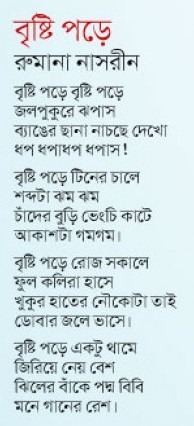 বৃষ্টি পড়ে
রুমানা নাসরীন
বৃষ্টি পড়ে বৃষ্টি পড়ে
জলপুকুরে ঝপাস
ব্যাঙের ছানা নাচছে দেখো
ধপ ধপাধপ ধপাস!
বৃষ্টি পড়ে টিনের চালে
শব্দটা ঝম ঝম
চাঁদের বুড়ি ভেংচি কাটে
আকাশটা গমগম।
বৃষ্টি পড়ে রোজ সকালে
ফুল কলিরা হাসে
খুকুর হাতের নৌকোটা তাই
ডোবার জলে ভাসে।
বৃষ্টি পড়ে একটু থামে
জিরিয়ে নেয় বেশ
ঝিলের বাঁকে পদ্ম বিবি
মনে গানের রেশ।